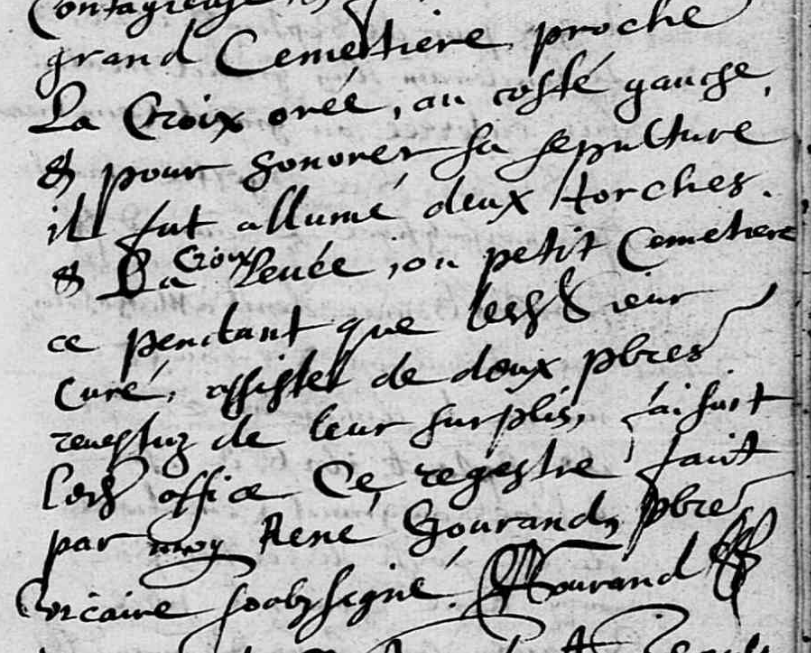 Contagieuse
grand Cemettiere, proche
La Croix orée, au costé gauche,
& pour honorer sa sepulture
il fut allumé deux torches.
& La Croix levée, ou petit Cemetiere
ce pendant que led Sieur
Curé, assisté de deux pbres
revestuz de leur surplis, faisoit
led office Ce regestre faict
par moy René Gourand, pbre
vicaire soubsigné. Gourand